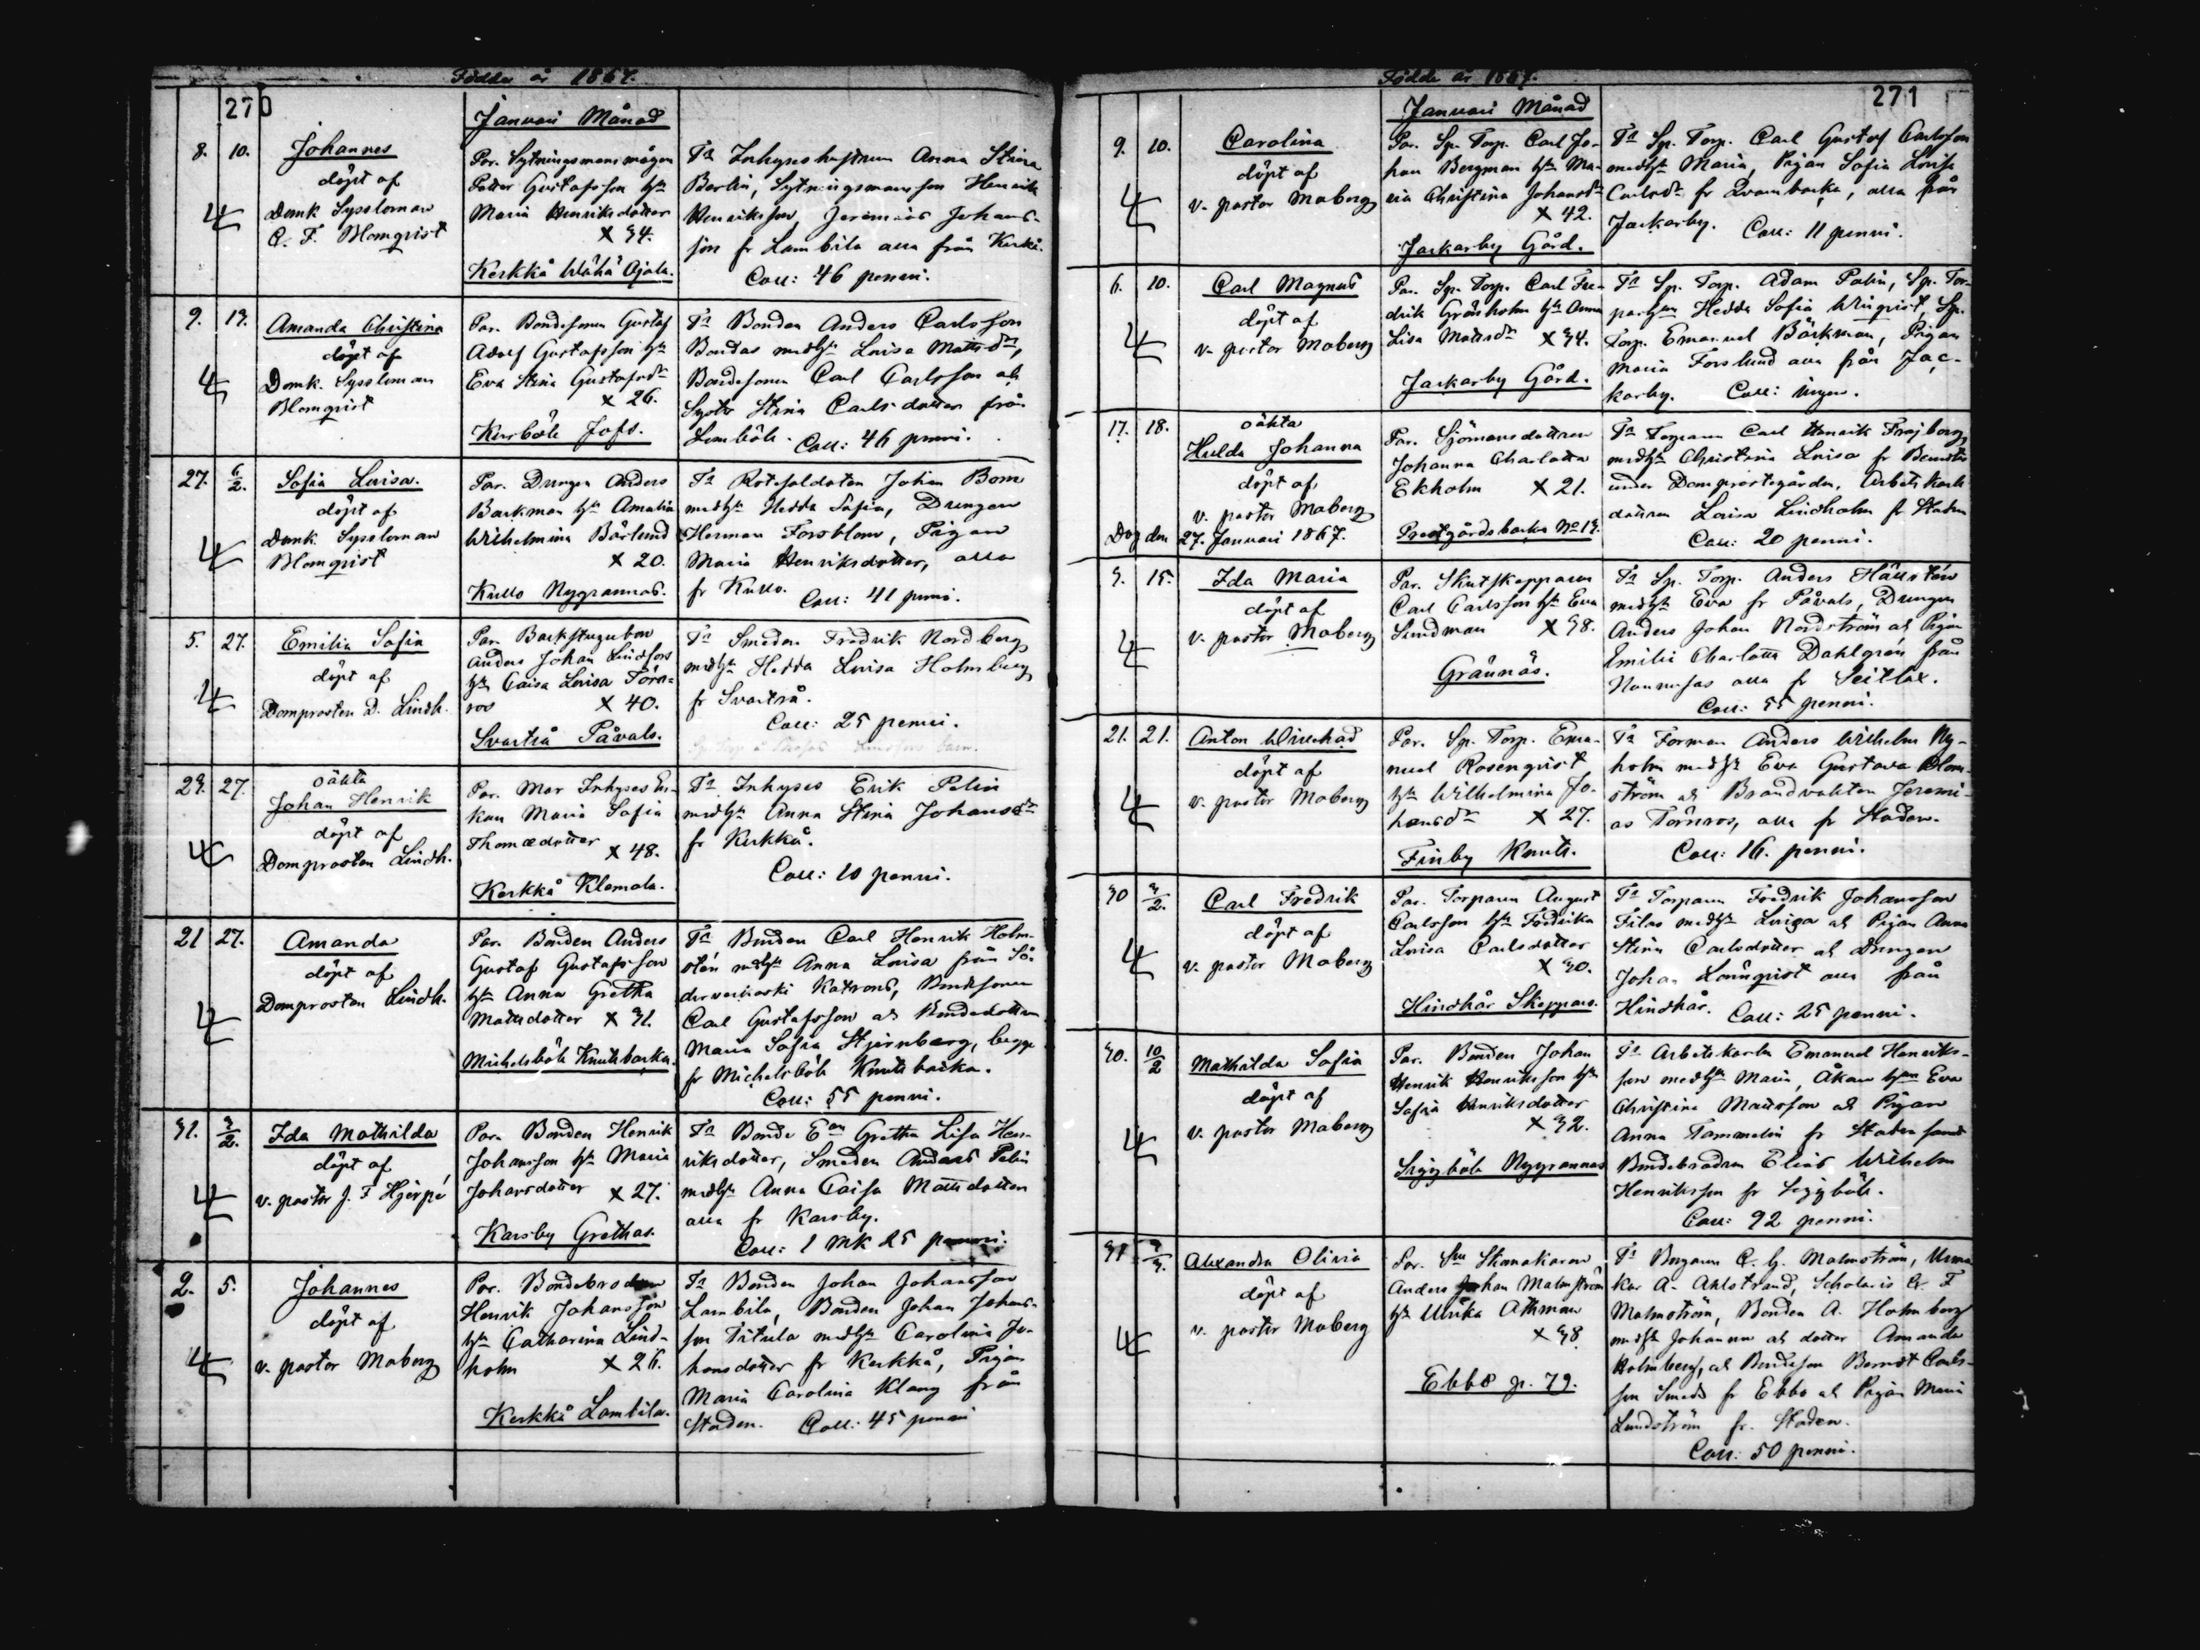 Födde år 1867.
270
Januari Månad
8. 10. Johannes
döpt af
Domk. Syssloman
C. F. Blomqvist
Par. Sytningsmans mågen
Petter Gustafsson hu
Maria Henriksdotter
X 34.
Kerkkå Wähä Ojala.
Fa Inhyses hustrun Anna Stina
Berlin, Sytningsmans son Henrik
Henriksson, Jeremias Johans-
son fr Lambila alla från Kerkkå.
Coll: 46 penni.
9. 13. Amanda Christina
döpt af
Domk. Syssloman
Blomqvist
Par. Bondesonen Gustaf
Adolf Gustafsson hu
Eva Stina Gustafsdr
X 26.
Kurböle Jofs.
Fa Bonden Anders Carlsson
Bondas medhu Lovisa Mattsdr,
Bondesonen Carl Carlsson ah
Syster Stina Carlsdotter från
Coll: 46 penni.
27. 6/2. Sofia Lovisa.
döpt af
Domk. Syssloman
Blomqvist
Par. Drengen Anders
Backman hu Amalia
Wilhelmina Bärlund
X 20.
Kullo Nygrannas.
Fa Rotesoldaten Johan Bom
medhu Hedda Sofia, Drengen
Herman Forsblom, Pigan
Maria Henriksdotter, alla
fr Kullo.
Coll: 41 penni.
5. 27. Emilia Sofia
döpt af
Domprosten D. Lindh.
Par. Backstugubon
Anders Johan Lindfors
hu Caisa Lovisa Törn-
ros X 40.
Svartså Påvals.
Fa Smeden Fredrik Nordberg
medhu Hedda Lovisa Holmberg
fr Svartså.
Coll: 25 penni.
23. 27. oäkta
Johan Henrik
döpt af
Domprosten Lindh.
Par. Mor Inhyses En-
kan Maria Sofia
Thomædotter
X 48.
Kerkkå Klemola.
Fa Inhyses Erik Pelin
medhu Anna Stina Johansdr
fr Kerkkå.
Coll: 10 penni.
21 27. Amanda
döpt af
Domprosten Lindh.
Par. Bonden Anders
Gustaf Gustafsson
hu Anna Gretha
Mattsdotter X 31.
Michelsböle Knutsbacka.
Fa Bonden Carl Henrik Holm-
stén medhu Anna Lovisa från Sö-
derveckoski Katrons, Bondesonen
Carl Gustafsson ah Bondedottern
Maria Sofia Stjernberg, begge
fr Michelsböle Knutsbacka.
Coll: 55 penni.
31. 3/2. Ida Mathilda
döpt af
v. pastor J. F. Hjerpé
Par. Bonden Henrik
Johansson hu Maria
Johansdotter X 27.
Karsby Grethas.
Fa Bonde Ean Gretha Lisa Hen-
riksdotter, Smeden Anders Pelin
medhu Anna Caisa Mattsdotter
alla fr Karsby.
Coll: 1 mk 25 penni.
2. 5. Johannes
döpt af
v. pastor Moberg
Par. Bondebrodren
Henrik Johansson
hu Catharina Lind-
holm X 26.
Kerkkå Lambila.
Fa Bonden Johan Johansson
Lambila, Bonden Johan Johans-
son Titula medhu Carolina Jo-
hansdotter fr Kerkkå, Pigan
Maria Carolina Klang från
Staden. Coll: 45 penni
Födde år 1867.
271
Januari Månad
9. 10. Carolina
döpt af
v. pastor Moberg
Par. Sp. Torp. Carl Jo-
han Bergman hu Ma-
ria Christina Johansdr
X 42.
Jackarby Gård.
Fa Sp. Torp. Carl Gustaf Carlsson
medhu Maria, Pigan Sofia Lovisa
Carlsdr fr Qvarnbacka, alla från
Jackarby. Coll: 11 penni.
6. 10. Carl Magnus
döpt af
v. pastor Moberg
Par. Sp. Torp. Carl Fre-
drik Grönholm hu Anna
Lisa Mattsdr X 34.
Jackarby Gård.
Fa Sp. Torp. Adam Palin, Sp. Tor-
parhun Hedda Sofia Winqvist, Sp.
Torp. Emanuel Bäckman, Pigan
Maria Forslund alla från Jac-
karby. Coll: ingen.
17. 18. oäkta
Hulda Johanna
döpt af
v. pastor Moberg
Dog den 27. Januari 1867.
Par. Sjömansdottren
Johanna Charlotta
Ekholm X 21.
Prestgårdsbacka No 13.
Fa Torparen Carl Henrik Frajborg
medhu Christina Lovisa fr
under Domprostegården, Arbetskarls
dottren Lovisa Lindholm fr Staden
Coll: 20 penni.
3. 15. Ida Maria
döpt af
v. pastor Moberg
Par. Skutskepparen
Carl Carlsson hu Eva
Sundman X 38.
Grännäs.
Fa Sp. Torp. Anders Hällstén
medhu Eva fr Påvals, Drengen
Anders Johan Nordström ah Pigan
Emilie Charlotta Dahlgrén från
alla fr Seitlax.
Coll: 55 penni.
21. 21. Anton Willehad
döpt af
v. pastor Moberg
Par. Sp. Torp. Ema-
nuel Rosenqvist
hu Wilhelmina Jo-
hansdr X 27.
Finby Knuts.
Fa Forman Anders Wilhelm Ny-
holm medhu Eva Gustava Blom-
ström ah Brandvakten Jeremi-
as Törnros, alla fr Staden.
Coll: 16. penni.
30 3/2. Carl Fredrik
döpt af
v. pastor Moberg
Par. Torparen August
Carlsson hu Fredrika
Lovisa Carlsdotter
X 30.
Hindhår Skeppars.
Fa Torparen Fredrik Johansson
Filas medhu Lovisa ah Pigan Anna
Stina Carlsdotter ah Drengen
Johan Lönnqvist alla från
Hindhår. Coll: 25 penni.
30. 10/2 Mathilda Sofia
döpt af
v. pastor Moberg
Par. Bonden Johan
Henrik Henriksson hu
Sofia Henriksdotter
X 32.
Siggböle Nygrannas
Fa Arbetskarln Emanuel Henriks-
son medhu Maria, Åkarhun Eva
Christina Mattsson ah Pigan
Anna Tammelin fr Staden samt
Bondebrodren Elias Wilhelm
Henriksson fr Siggböle.
Coll: 92 penni.
31 3/3. Alexandra Olivia
döpt af
v. pastor Moberg
Par. Skomakaren
Anders Johan Malmström
hu Ulrika Athman
X 38.
Ebbo p. 79.
Fa Borgaren C. G. Malmström, Urma-
kar A. Ahlstrand, Scholaris C. F.
Malmström, Bonden A. Holmberg
medhu Johanna ah dotter Amanda
Holmberg, ah Bondeson Berndt Carls-
son Smeds fr Ebbo ah Pigan Maria
Lundström fr. Staden.
Coll: 50 penni.